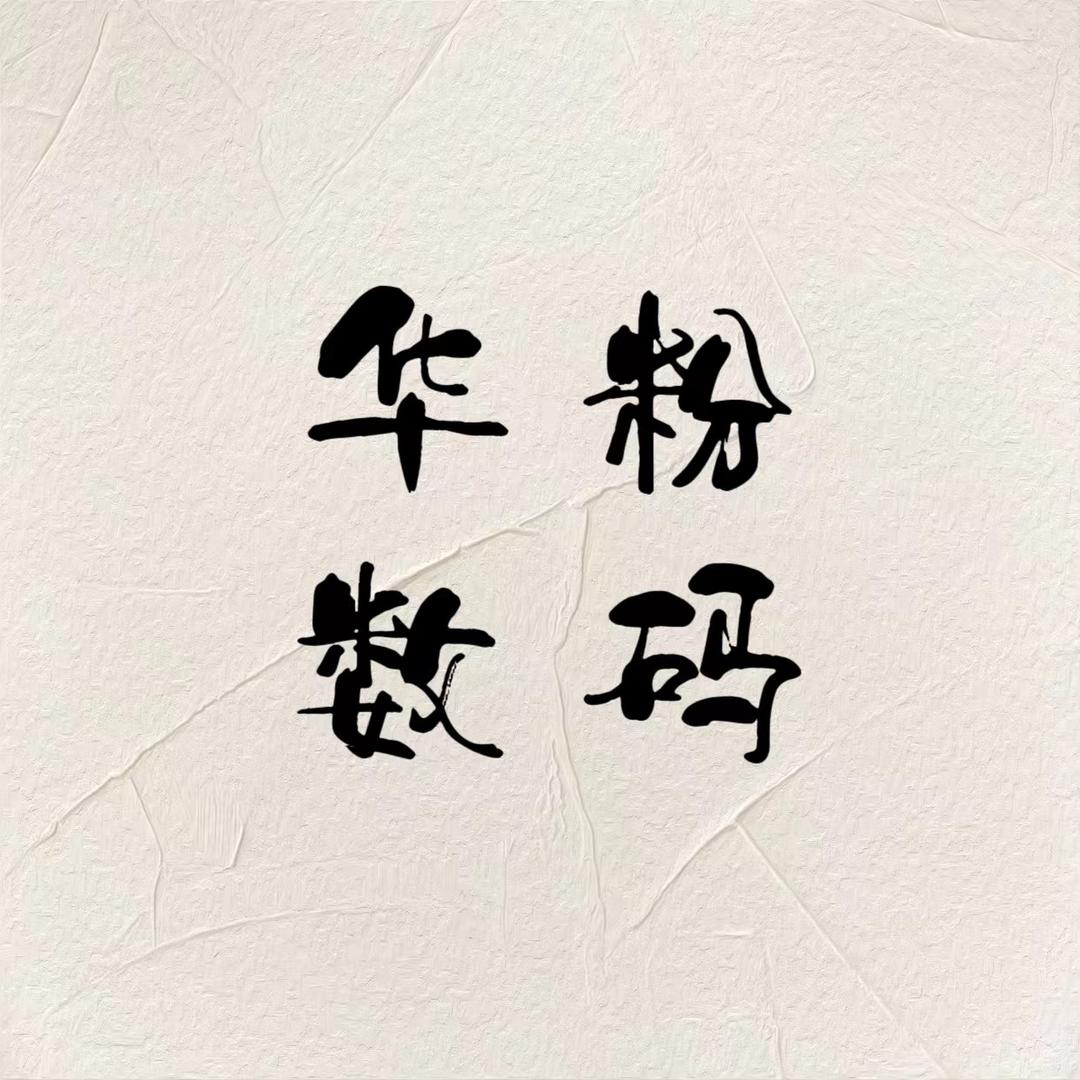 华粉
数码